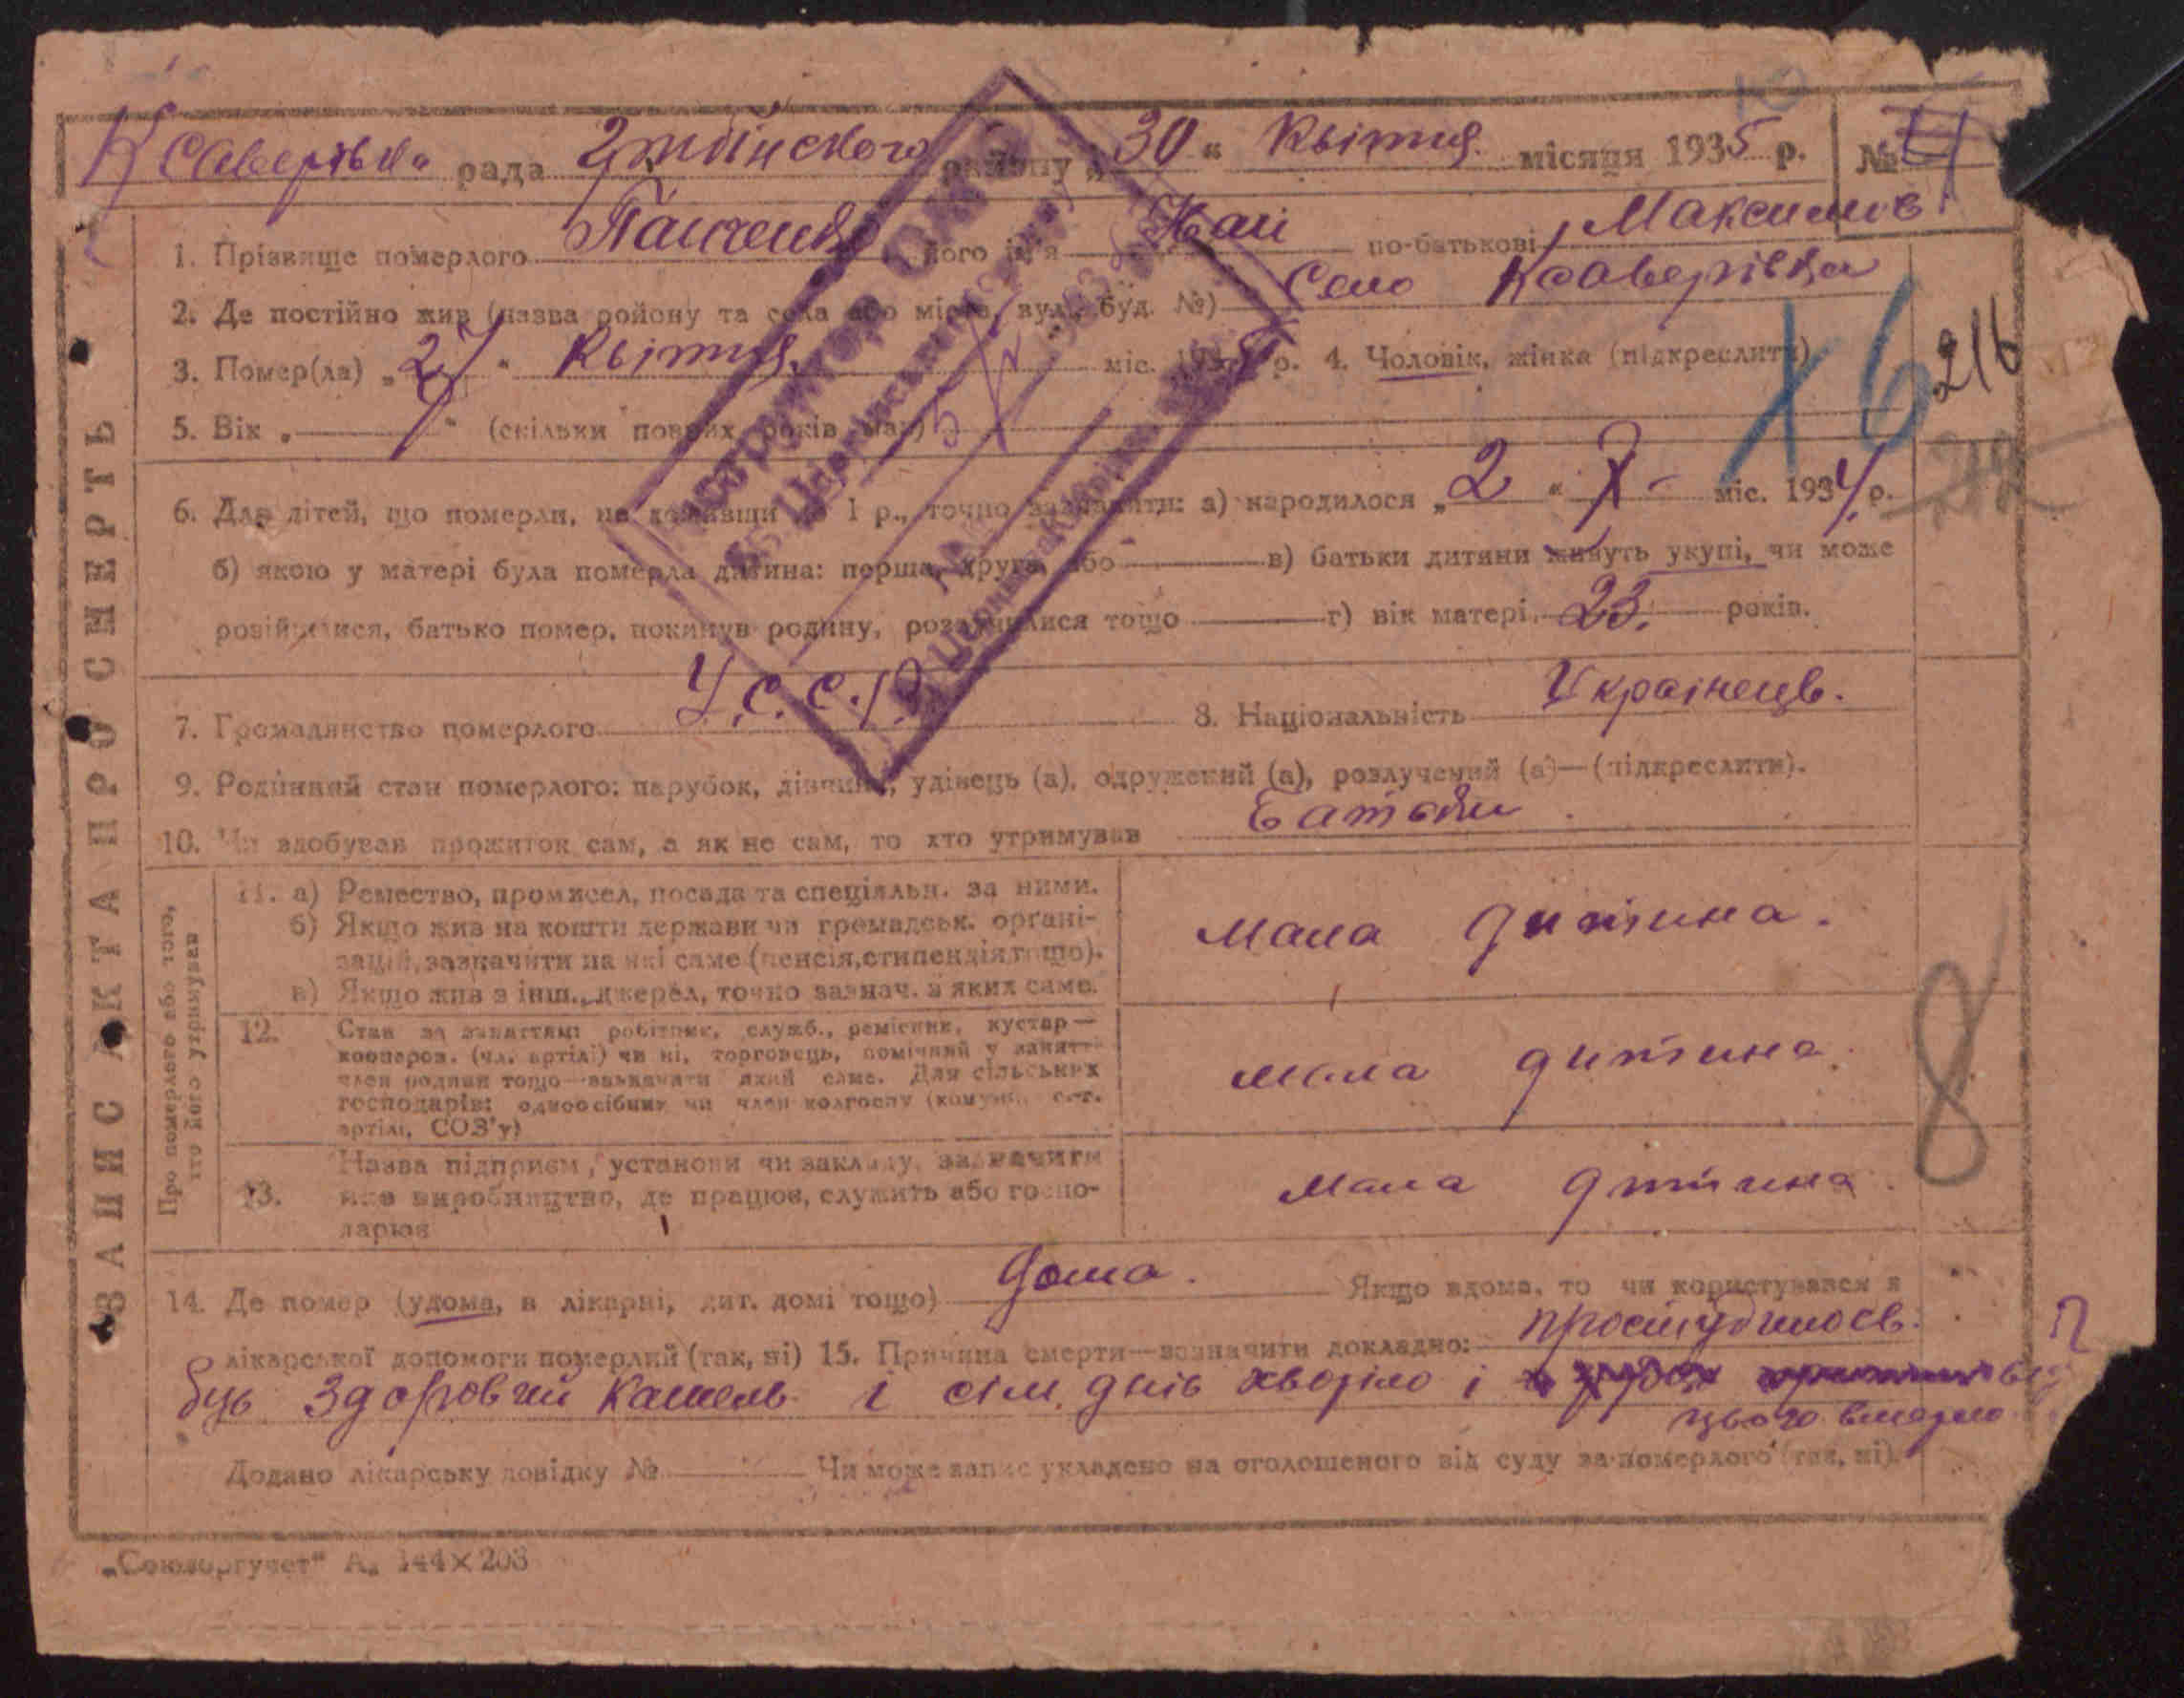 Ксаверівка рада району „30“ Квітня місяця 1935 р. №
1. Прізвище померлого Панченко його ім'я по-батькові Максимов
2. Де постійно жив (назва району та села або міста, вул., буд. №) Село Ксаверівка
3. Помер(ла) „27“ Квітня міс. 1935 р. 4. Чоловік, жінка (підкреслити)
216
5. Вік „—“ (скільки повних років мав)
Х6
6. Для дітей, що померли, не доживши до 1 р., точно зазначити: а) народилося „2“ X - міс. 1934 р.
б) якою у матері була померла дитина: перша, друга, або — в) батьки дитини живуть укупі, чи може
розійшлися, батько помер, покинув родину, розлучилися тощо — г) вік матері 23. років.
7. Громадянство померлого У.С.С.Р. 8. Національність Українець.
9. Родинний стан померлого: парубок, дівчина, удівець (а), одружений (а), розлучений (а)—(підкреслити).
10. Чи здобував прожиток сам, а як не сам, то хто утримував Батьки
ЗАПИС АКТА ПРО СМЕРТЬ
Про померлого або того,
хто його утримував
11. а) Ремество, промисел, посада та спеціяльн. за ними.
б) Якщо жив на кошти держави чи громадськ. органі-
зацій, зазначити на які саме (пенсія, стипендія тощо).
в) Якщо жив з інш. джерел, точно зазнач. з яких саме.
мала дитина.
12. Стан за заняттям: робітник, служб., ремісник, кустар—
кооперов. (чл. артілі) чи ні, торговець, помічний у занятті
член родини тощо—зазначити який саме. Для сільських
господарів: одноосібник чи член колгоспу
артілі, СОЗ'у)
мала дитина.
13. Назва підприєм., установи чи закладу, зазначити
яке виробництво, де працює, служить або госпо-
дарює
мала дитина.
8
14. Де помер (удома, в лікарні, дит. домі тощо) дома. Якщо вдома, то чи користувався з
лікарської допомоги померлий (так, ні) 15. Причина смерти—зазначити докладно: простудилось.
був здоровий кашель і сім днів хворіло і від
цього вмерло
Додано лікарську довідку № — Чи може запис укладено на оголошеного від суду за померлого (так, ні).
„Союзоргучет“ А. 144×203